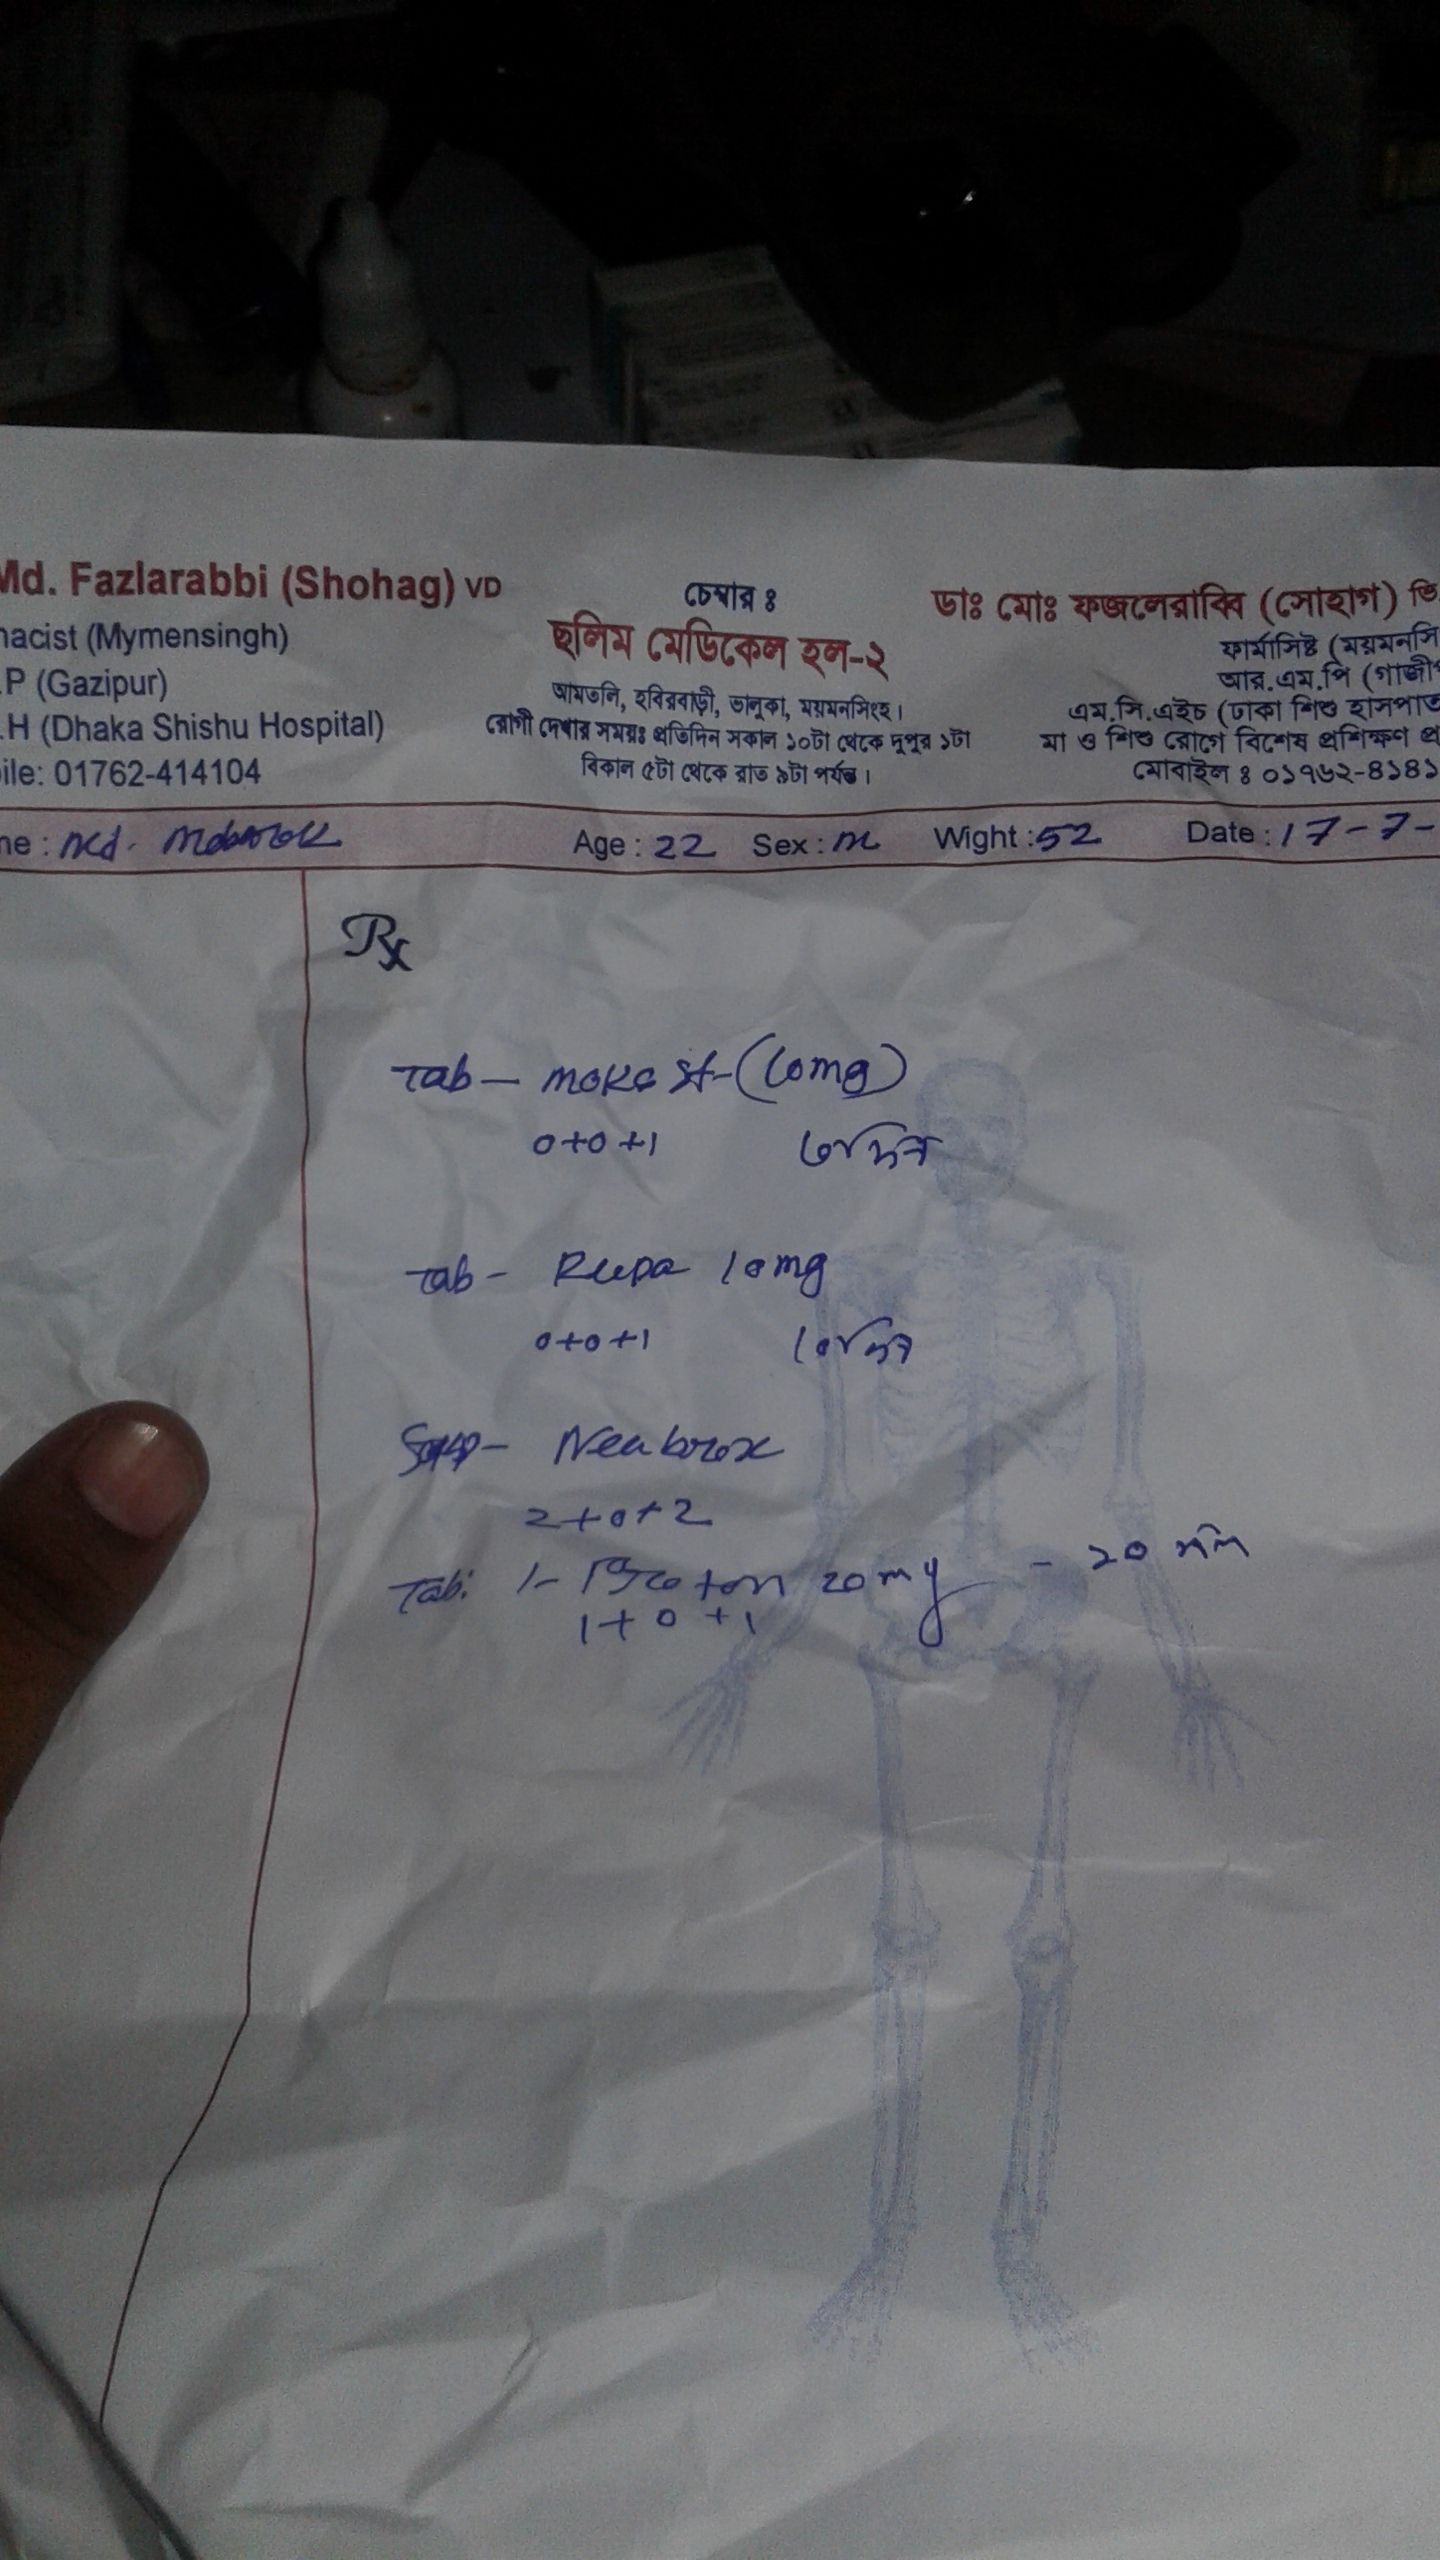 Md. Fazlarabbi (Shohag) VD
macist (Mymensingh)
.P (Gazipur)
.H (Dhaka Shishu Hospital)
ile: 01762-414104
চেম্বার ঃ
ছলিম মেডিকেল হল-২
আমতলি, হবিরবাড়ী, ভালুকা, ময়মনসিংহ।
রোগী দেখার সময়ঃ প্রতিদিন সকাল ১০টা থেকে দুপুর ১টা
বিকাল ৫টা থেকে রাত ৯টা পর্যন্ত।
ডাঃ মোঃ ফজলেরাব্বি (সোহাগ) ভি
ফার্মাসিষ্ট (ময়মনসি
আর.এম.পি (গাজী
এম.সি.এইচ (ঢাকা শিশু হাসপাত
মা ও শিশু রোগে বিশেষ প্রশিক্ষণ প্র
মোবাইল ঃ ০১৭৬২-৪১৪১
me : Md. Age : 22 Sex : M Wight : 52 Date : 17-7-
Rx
Tab - (10mg)
0+0+1
Tab - Rupa 10mg
0+0+1
2+0+2
Tab: 20mg - 20
1+0+1